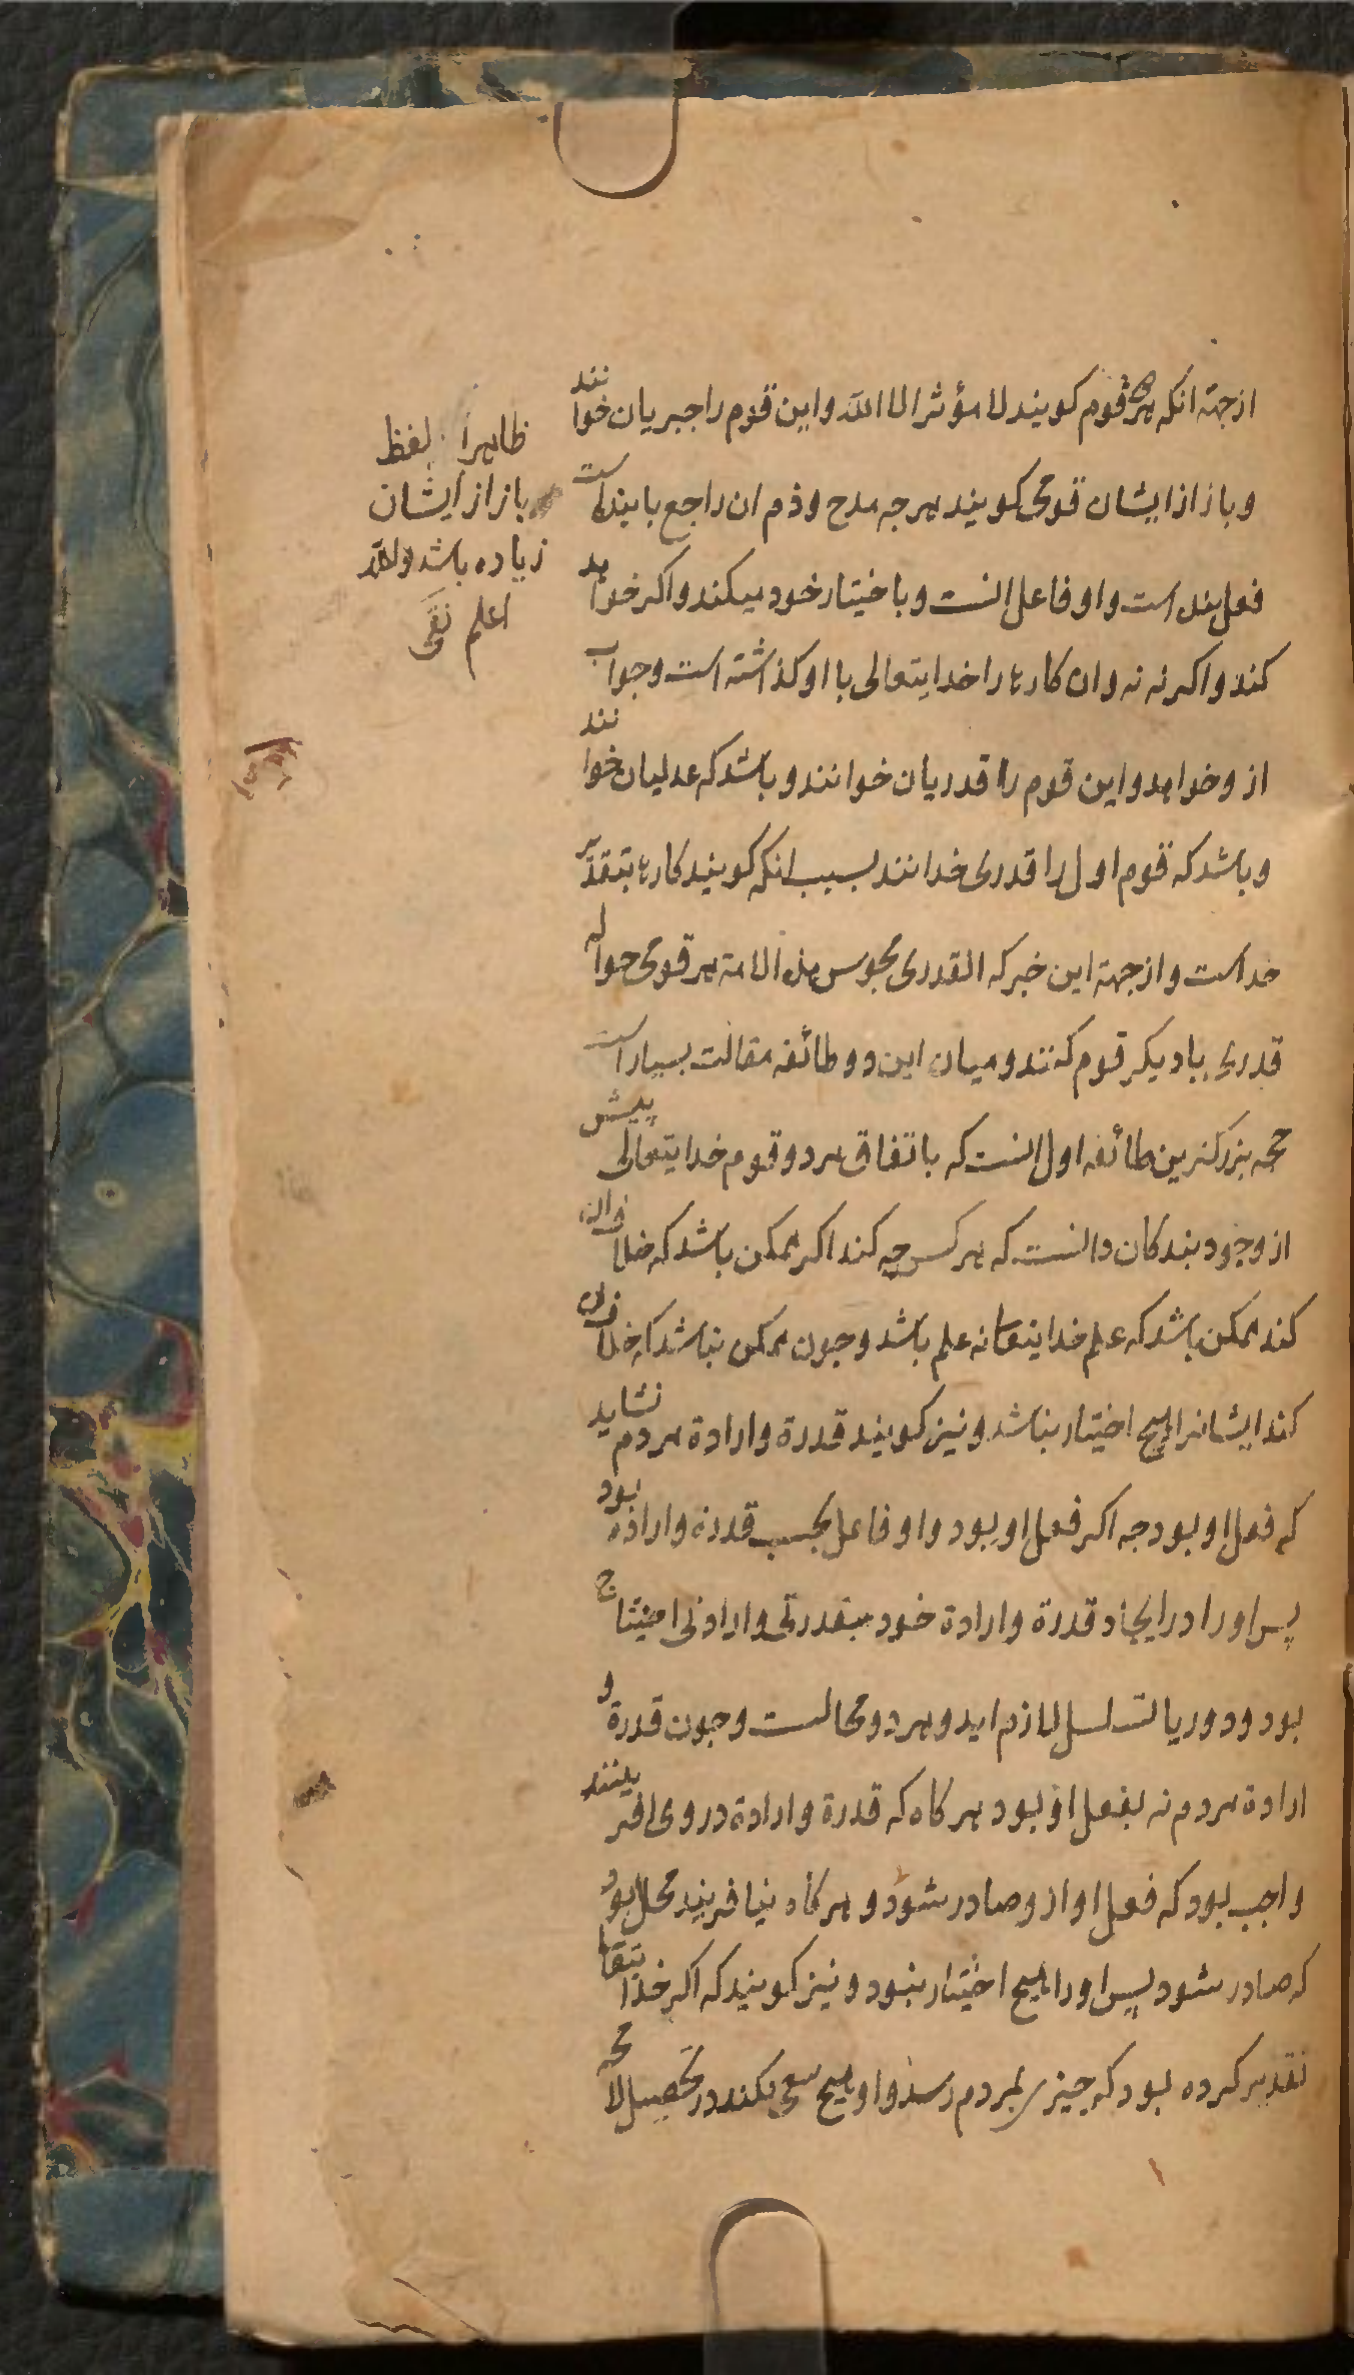 ازجهة انکه هر قوم کویند لا مؤثر الا الله و این قوم را جبریان خوانند
و باز از ایشان قومی کویند هرجه مدح و ذم ان راجع با بنده است
فعل بنده است و او فاعل انست و باختیار خود میکند و اکر خواهد
کند و اکر نه نه و ان کارها را خدایتعالی با او کذاشته است و جواب
ازو خواهد و این قوم را قدریان خوانند و باشد که عدلیان خوانند
و باشد که قوم اول را قدری خوانند بسبب انکه کویند کارها بتقدیر
خداست و ازجهة این خبر که القدری مجوس هذه الامة هر قومی حواله
قدری با دیکر قوم کنند و میان این دو طائفه مقالت بسیار است
حجه بزرکترین طائفه اول انست که باتفاق هر دو قوم خدایتعالی پیش
از وجود بندکان دانست که هر کس چه کند اکر ممکن باشد که خلاف ان
کند ممکن باشد که علم خدایتعا نه علم باشد و جون ممکن نباشد که خلاف ان
کند ایشانرا هیچ اختیار نباشد و نیز کویند قدرة و ارادة مردم نشاید
که فعل او بود جه اکر فعل او بود و او فاعل بحسب قدرة و اراده بود
پس او را در ایجاد قدرة و ارادة خود بقدرتی و ارادتی احتیاج
بود و دور یا تسلسل لازم اید و هر دو محالست و جون قدرة و
ارادة مردم نه بفعل او بود هر کاه که قدرة و ارادة در وی افرینند
واجب بود که فعل او ازو صادر شود و هر کاه نیافریند محال بود
که صادر شود پس او را هیچ اختیار نبود و نیز کویند که اکر خدایتعا
تقدیر کرده بود که جیزی بمردم رسد و او هیچ سعی نکند در تحصیل لا محه
ظاهرا لفظ
باز از ایشان
زیاده باشد والله
اعلم نقی